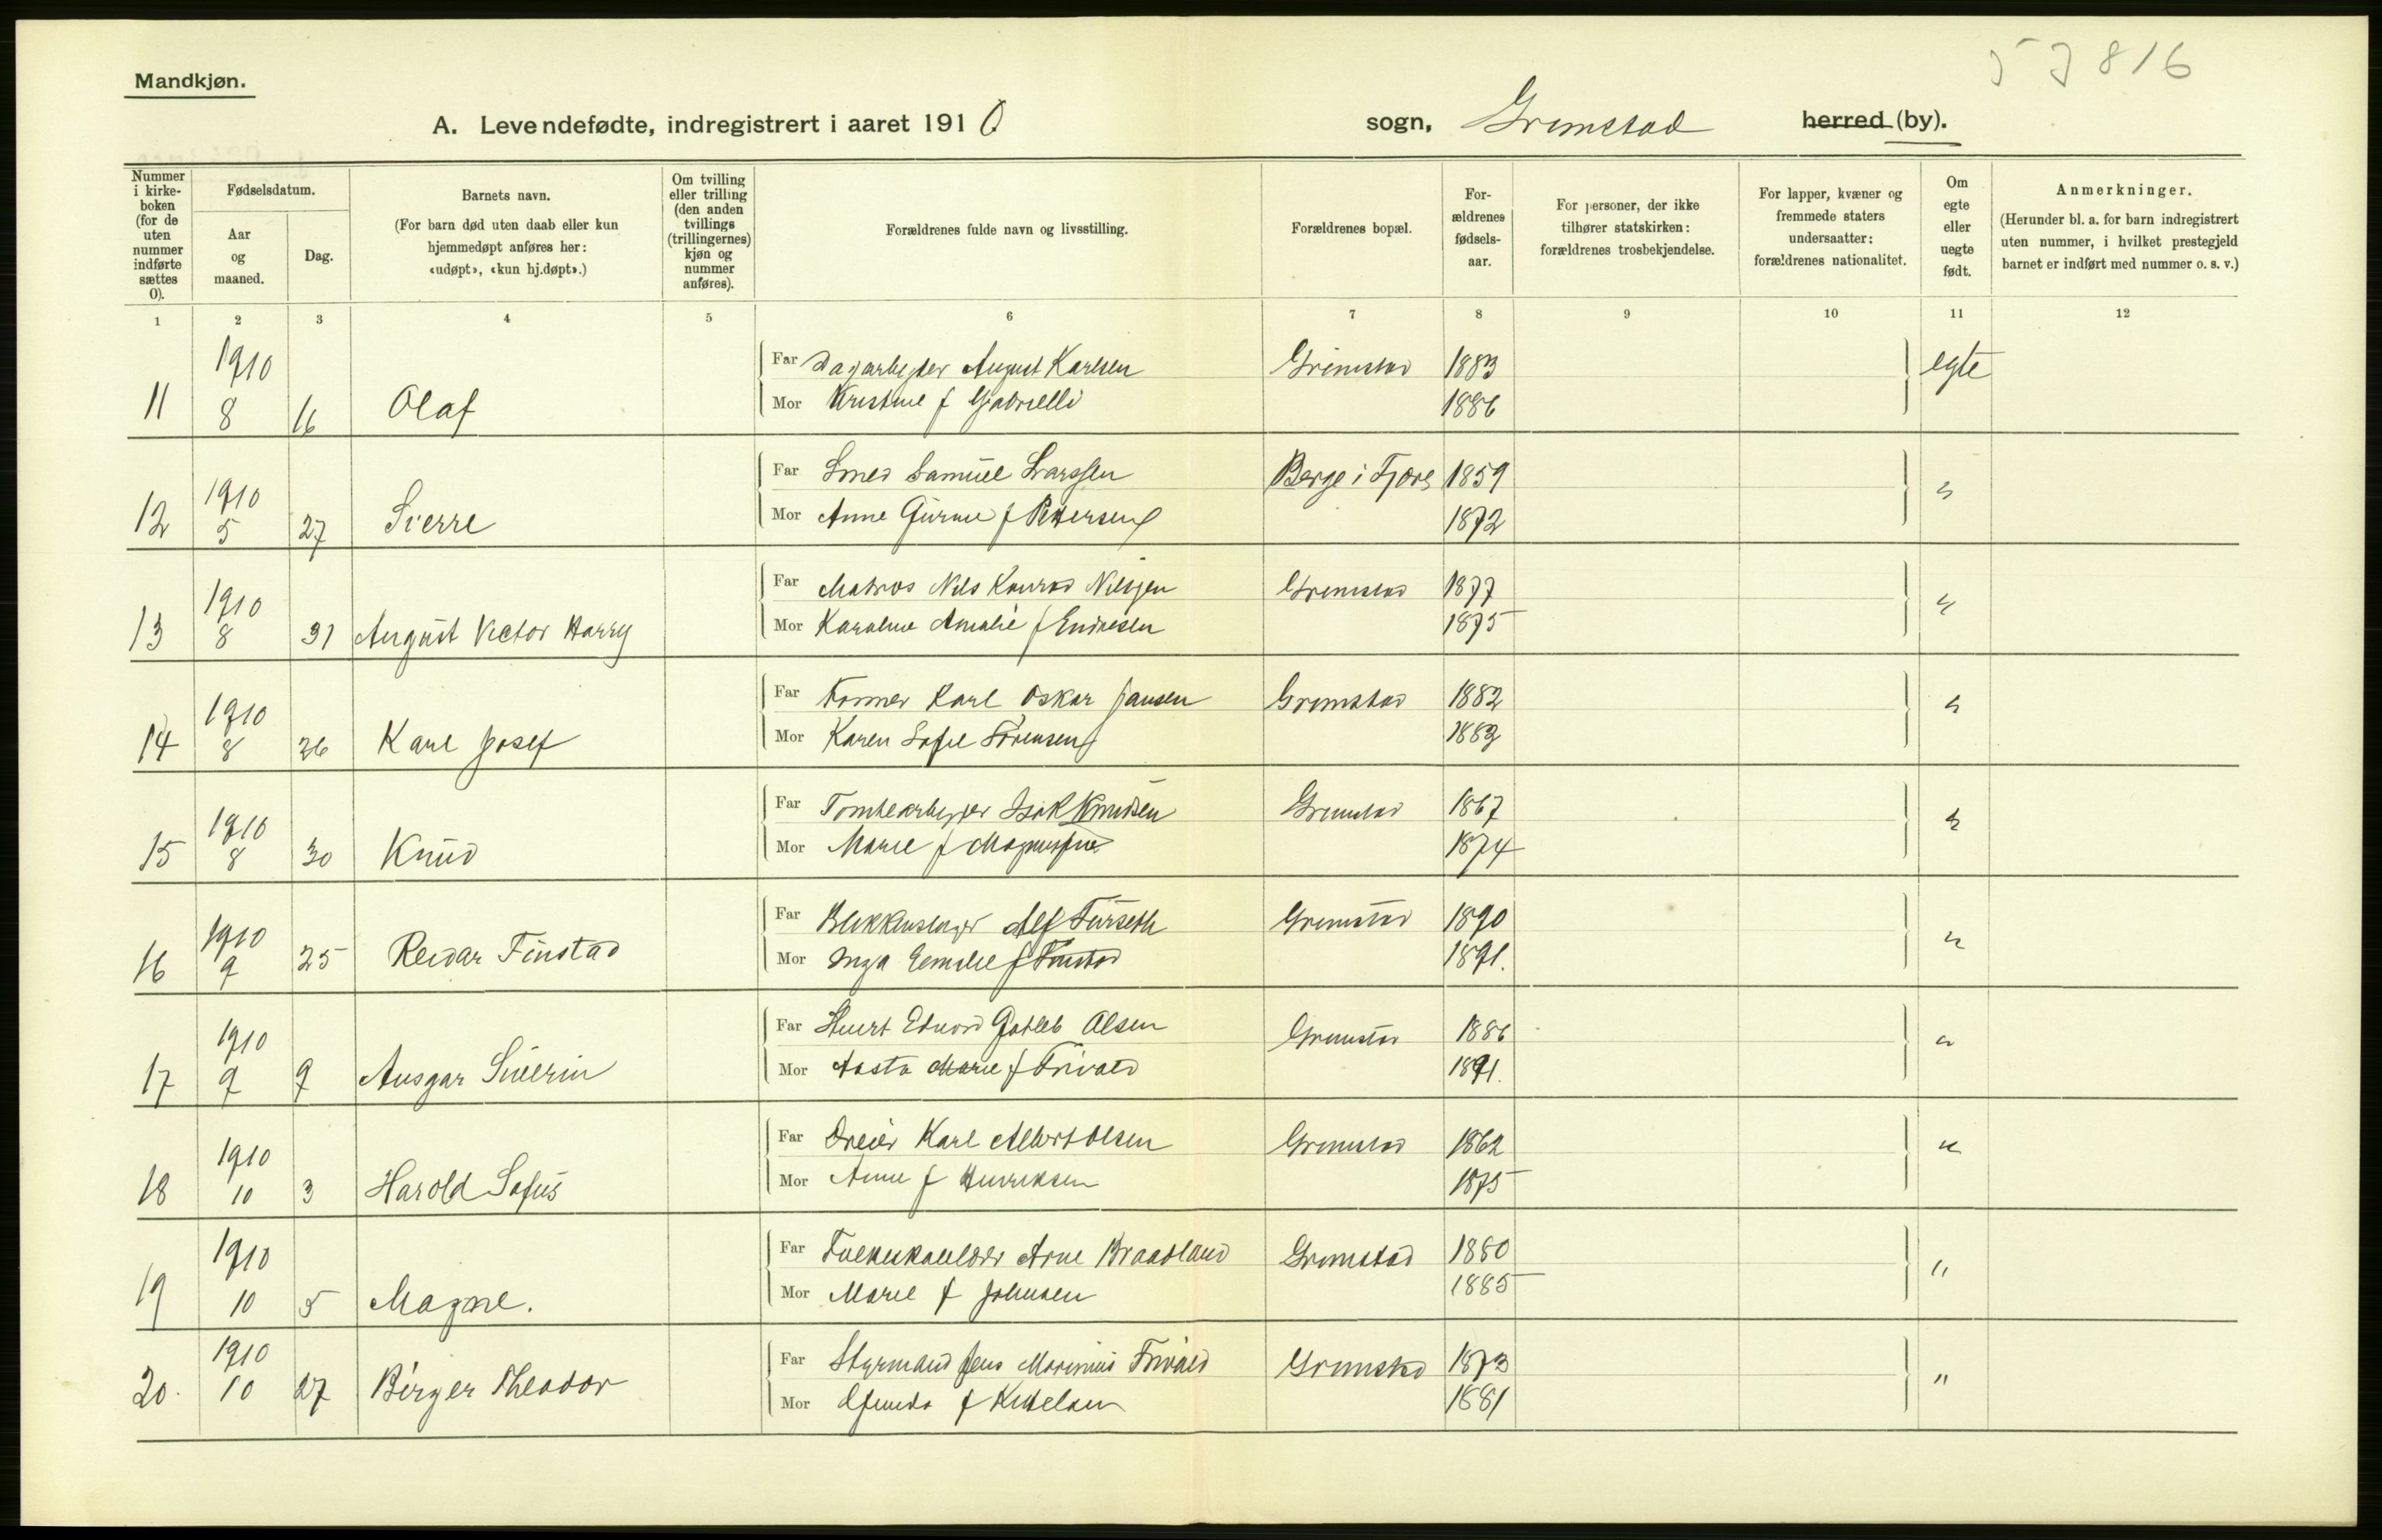 816
Mandkjøn.
A. Levendefødte, indregistrert i aaret 1910
sogn, Grimstad herred (by).
Nummer i kirkeboken (for de uten nummer indførte sættes 0).
Fødselsdatum.
Aar og maaned.
Dag.
Barnets navn.
(For barn død uten daab eller kun hjemmedøpt anføres her: «udøpt», «kun hj.døpt».)
Om tvilling eller trilling (den anden tvillings (trillingernes) kjøn og nummer anføres).
Forældrenes fulde navn og livsstilling.
Forældrenes bopæl.
Forældrenes fødselsaar.
For personer, der ikke tilhører statskirken: forældrenes trosbekjendelse.
For lapper, kvæner og fremmede staters undersaatter: forældrenes nationalitet.
Om egte eller uegte født.
Anmerkninger.
(Herunder bl. a. for barn indregistrert uten nummer, i hvilket prestegjeld barnet er indført med nummer o. s. v.)
1 2 3 4 5 6 7 8 9 10 11 12
11 1910 8 16 Olaf
Far Dagarbeider August Karlsen Grimstad 1883 egte
Mor Kristine f Gabrielli 1886
12 1910 5 27 Sverre
Far Smed Samuel Larssen Berge i Fjære 1859 "
Mor Anne Gurine f Pettersen 1872
13 1910 8 31 August Victor Harry
Far Matros Nils Konrad Nilsen Grimstad 1877 "
Mor Karoline Amalie f Endresen 1875
14 1910 8 26 Karl Josef
Far Former Karl Oskar Jansen Grimstad 1882 "
Mor Karen Sofie Sørensen 1882
15 1910 8 30 Knud
Far Tomtearbeider Isak Knudsen Grimstad 1867 "
Mor Marie f 1874
16 1910 9 25 Reidar Finstad
Far Blikkenslager Alf Furseth Grimstad 1890 "
Mor Inga Emilie f Finstad 1891.
17 1910 9 9 Ansgar Severin
Far Stuert Edvard Gotleb Olsen Grimstad 1886 "
Mor Aasta Marie f Frivold 1891.
18 1910 10 3 Harald Sofus
Far Dreier Karl Albert Olsen Grimstad 1862 "
Mor Anne f Henriksen 1875
19 1910 10 5 Magne.
Far Arne Braadland Grimstad 1880 "
Mor Marie f Johnsen 1885
20. 1910 10 27 Birger Theodor
Far Styrmand Jens Marinius Frivold Grimstad 1873 "
Mor f Kittelsen 1881